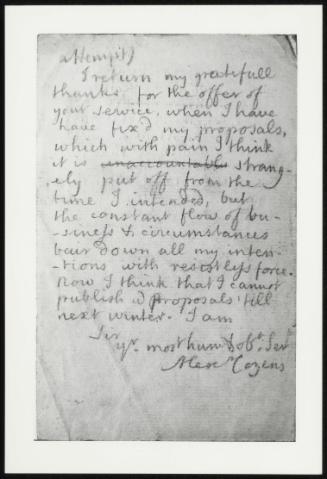 attempt)
I return my gratefull
thanks for the offer of
your service, when I have
have fix'd my proposals,
which with pain I think
it is unaccountable strang-
-ely put off from the
time I intended, but
the constant flow of bu-
-siness & circumstances
bair down all my inten-
-tions with resistless force.
Now I think that I cannot
publish proposals till
next winter. I am
Sir
yr. most hum & obt. Servt
Alexr Cozens